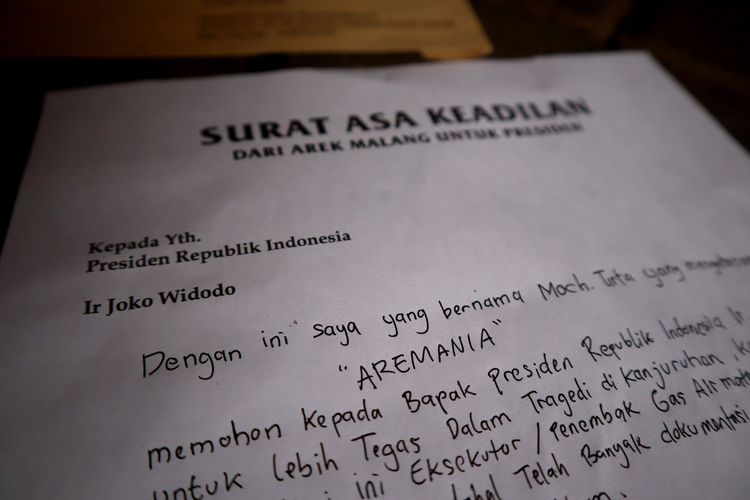 SURAT ASA KEADILAN
DARI AREK MALANG UNTUK PRESIDEN
Kepada Yth.
Presiden Republik Indonesia
Ir Joko Widodo
Dengan ini saya yang bernama Moch. Tirta yang
"AREMANIA"
memohon kepada Bapak Presiden Republik Indonesia Ir
untuk lebih Tegas Dalam Tragedi di Kanjuruhan,
ini Eksekutor / Penembak Gas Air mata
Telah Banyak dokumentasi